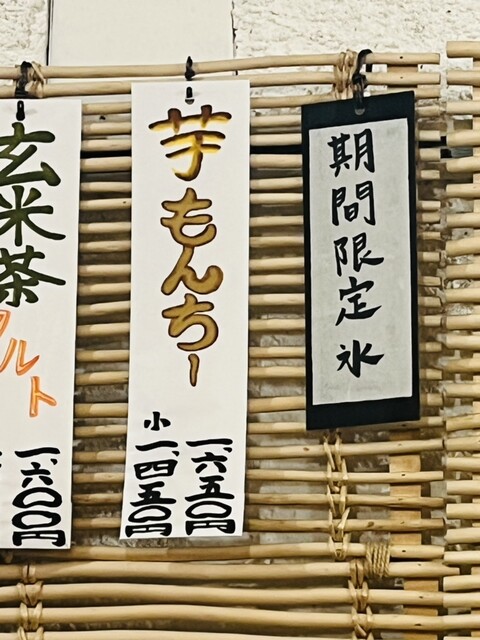 期間限定氷
芋もんちー
一、六五〇円
小
一、四五〇円
玄米茶
ルト
一、六〇〇円